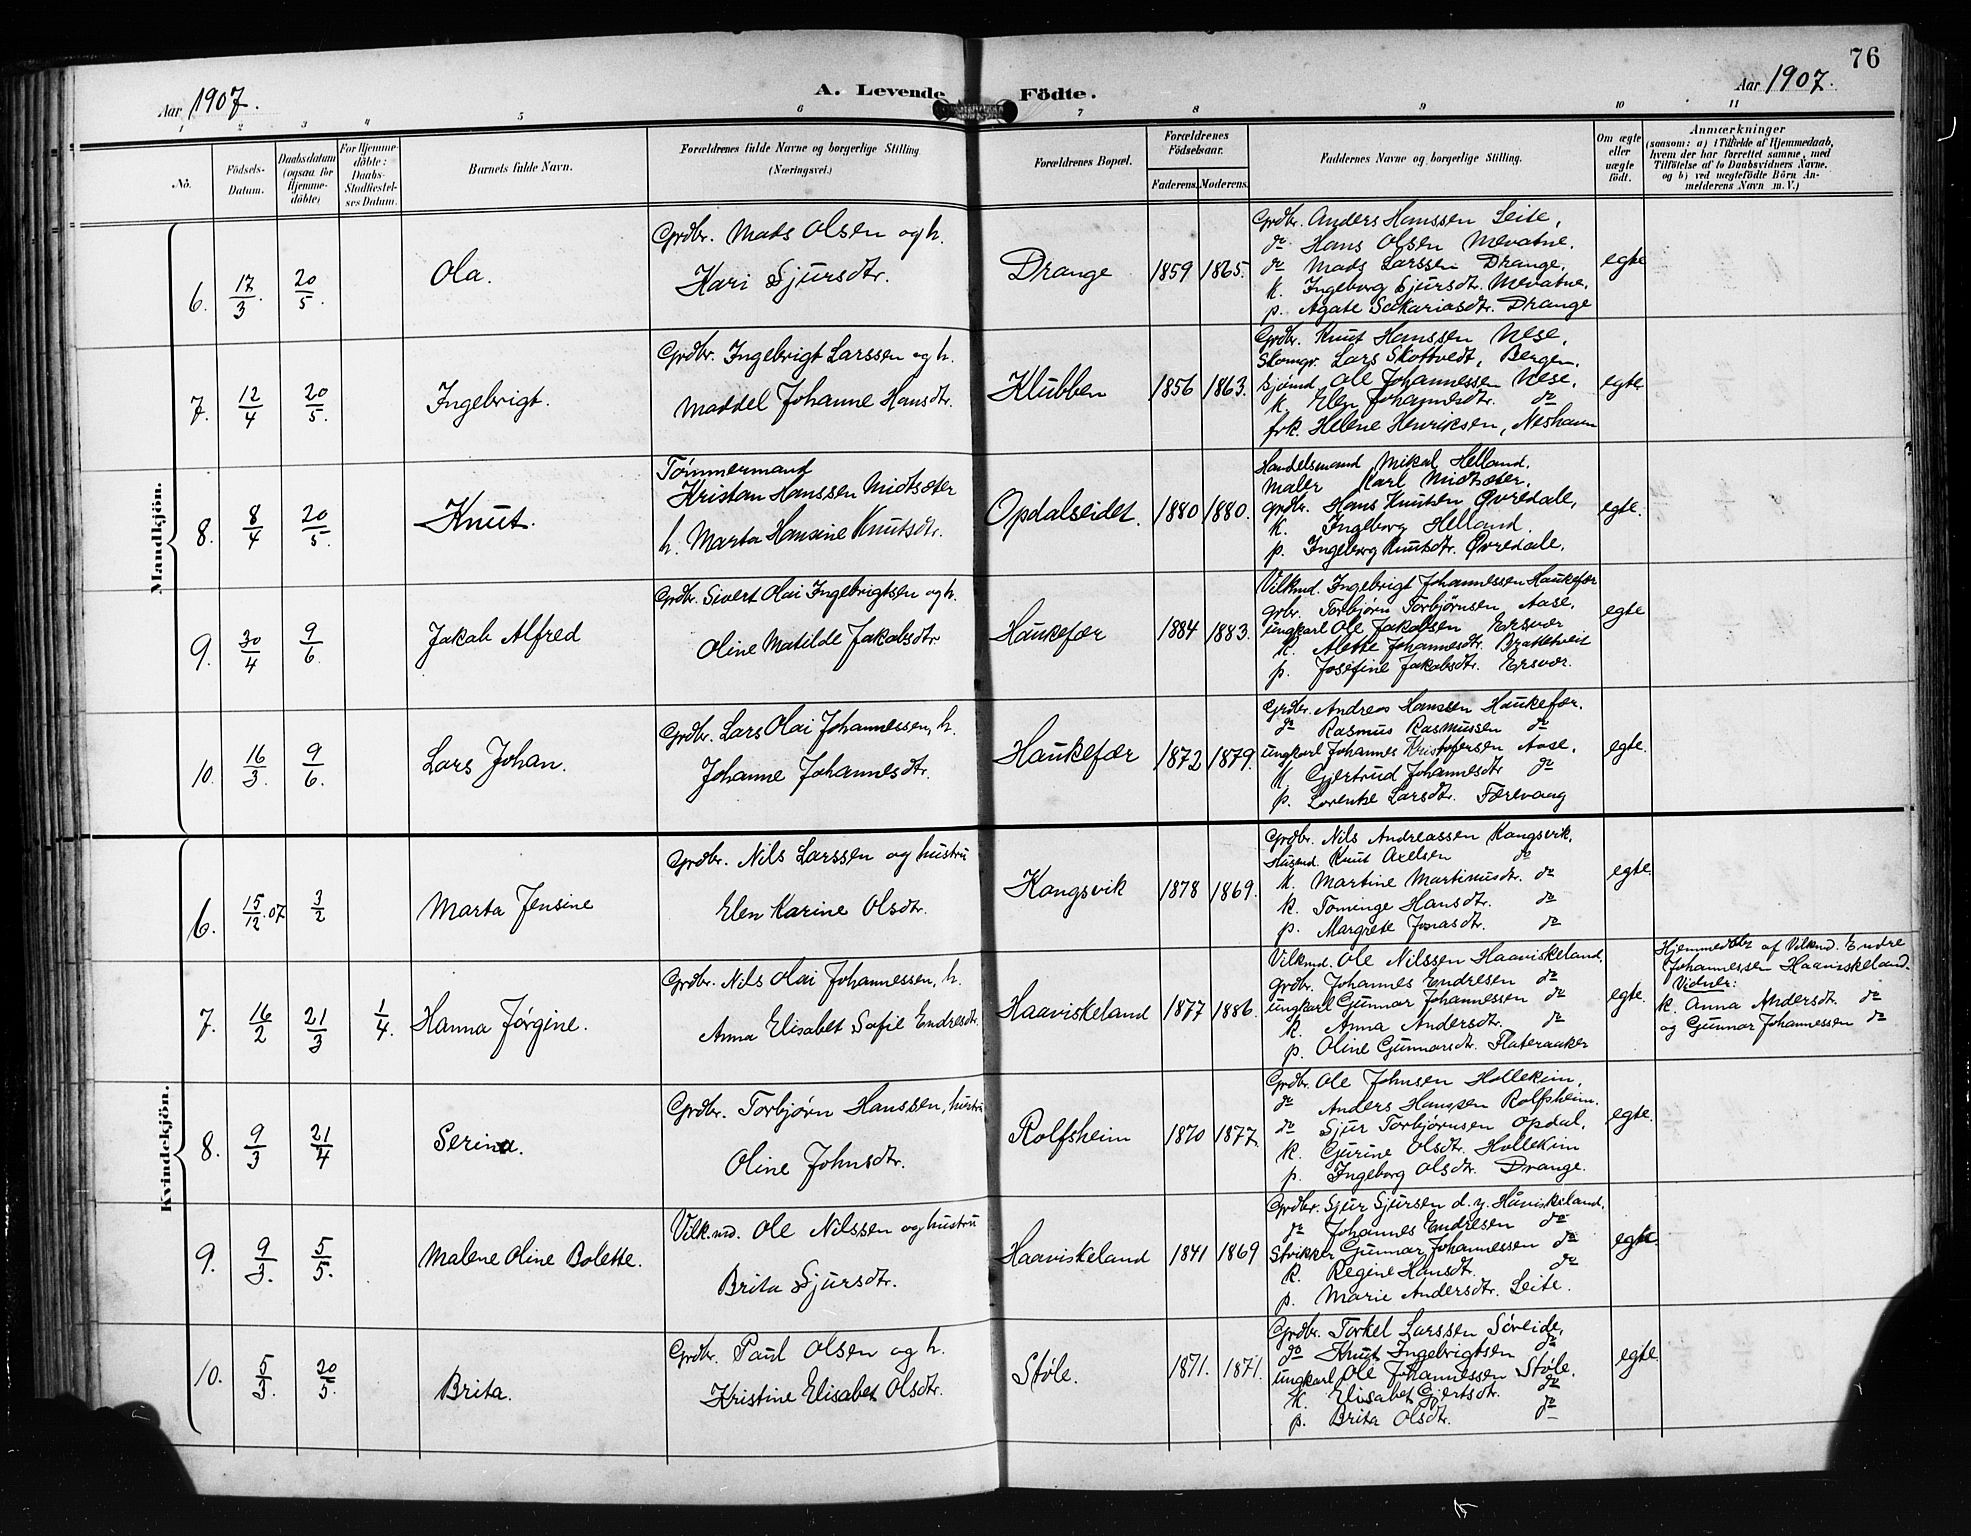 76
Aar 1907.
A. Levende Födte.
Aar 1907.
1 2 3 4 5 6 7 8 9 10 11
No.
Födsels-Datum.
Daabsdatum (ogsaa for Hjemmedöbte)
For Hjemmedöbte: Daabs-Stadfæstelses Datum.
Barnets fulde Navn.
Forældrenes fulde Navne og borgerlige Stilling (Næringsvei.)
Forældrenes Bopæl.
Forældrenes Födselsaar.
Faderens. Moderens.
Faddernes Navne og borgerlige Stilling.
Om ægte eller uægte födt.
Anmærkninger
(saasom: a) i Tilfælde af Hjemmedaab,
hvem der har forrettet samme, med
Tilföielse af to Daabsvidners Navne.
og b) ved uægtefödte Börn An-
melderens Navn m.V.)
Mandkjön.
6. 17/3. 20/5 Ola.
Grdbr. Mads Olsen og h.
Kari Sjursdtr.
Drange 1859 1865.
Grdbr. Anders Hanssen Leite,
do Hans Olsen Mevatne.
do Mads Larssen Drange.
k. Ingeborg Sjursdtr. Mevatne.
p. Agate Sakariasdtr. Drange
egte
7. 12/4 20/5. Ingebrigt.
Grdbr. Ingebrigt Larssen og h.
Maddel Johanne Hansdtr.
Klubben 1856 1863.
Grdbr. Knut Hanssen Nese,
Skomgr. Lars Skottvedt, Bergen.
Sjömd. Ole Johannessen Nese.
k. Elen Johannesdtr. do
frk. Helene Henriksen, Neshavn
egte
8. 8/4 20/5. Knut.
Tömmermand
Kristan Hanssen Midtsæter
h. Marta Hansine Knutsdtr.
Opdalseidet. 1880 1880.
Handelsmand Mikal Helland.
Maler Karl Midtsæter.
grdbr. Hans Knutsen Øvredale,
k. Ingeborg Helland.
p. Ingeborg Knutsdtr. Øvredale.
egte.
9. 30/4 9/6. Jakob Alfred
Grdbr. Sivert Olai Ingebrigtsen og h.
Oline Matilde Jakobsdtr.
Haukefær 1884 1883.
Vilkmd. Ingebrigt Johannessen Haukefær
grbr. Torbjørn Torbjørnsen Aase,
ungkarl Ole Jakobsen Ersvær
k. Alette Johannesdtr. Brattetveit
p. Josefine Jakobsdtr. Ersvær.
egte
10. 16/3. 9/6. Lars Johan.
Grdbr. Lars Olai Johannessen, h.
Johanne Johannesdtr.
Haukefær 1872 1879.
Grdbr. Andreas Hanssen Haukefær.
do Rasmus Rasmussen do
ungkarl Johannes Kristofersen Aase.
k. Gjertrud Johannesdtr do
p. Lorentse Larsdtr. Færevaag
egte.
Kvindekjön.
6. 15/12.07 3/2 Marta Jensine
Grdbr. Nils Larssen og hustru
Elen Karine Olsdtr.
Kongsvik 1878 1869.
Grdbr. Nils Andreassen Kongsvik.
Husmd. Knut Axelsen do
k. Martine Martinusdtr. do
k. Tominge Hansdtr. do
p. Margrete Jonasdtr. do
egte.
7. 16/2 21/3 1/4. Hanna Jørgine.
Grdbr. Nils Olai Johannessen, h.
Anna Elisabet Sofie Endresdtr.
Haaviskeland 1877 1886.
Vilkmd. Ole Nilssen Haaviskeland.
grdbr. Johannes Endresen do
ungkarl Gunnar Johannessen do
k. Anna Andersdtr. do
p. Oline Gunnarsdtr. Flateraaker
egte.
Hjemmedøbt af Vilkmd. Endre
Johannessen Haaviskeland.
Vidner:
k. Anna Andersdt. do
og Gunnar Johannessen do
8. 9/3 21/4 Serina.
Grdbr. Torbjørn Hanssen, hustru
Oline Johnsdtr.
Rolfsheim 1870 1877.
Grdbr. Ole Johnsen Hollekim,
do Anders Hanssen Rolfsheim.
do Sjur Torbjørnsen Opdal.
k. Gurine Olsdtr. Hollekim
p. Ingeborg Olsdtr. Drange.
egte.
9. 9/3. 5/5. Malene Oline Bolette.
Vilk.md. Ole Nilssen og hustru
Brita Sjursdtr.
Haaviskeland 1841 1869
Grdbr. Sjur Sjursen d.y. Håviskeland.
do Johannes Endresen do
Strikker Gunnar Johannessen do
k. Regine Hansdt. do
p. Marie Andersdtr. Leite.
egte.
10. 5/3. 20/5. Brita.
Grdbr. Paul Olsen og h.
Kristine Elisabet Olsdtr.
Støle. 1871. 1871.
Grdbr. Torkel Larssen Söreide,
do Knut Ingebrigtsen do
ungkarl Ole Johannessen Støle.
k. Elisabet Gjertsdtr. do
p. Brita Olsdtr. do
egte.